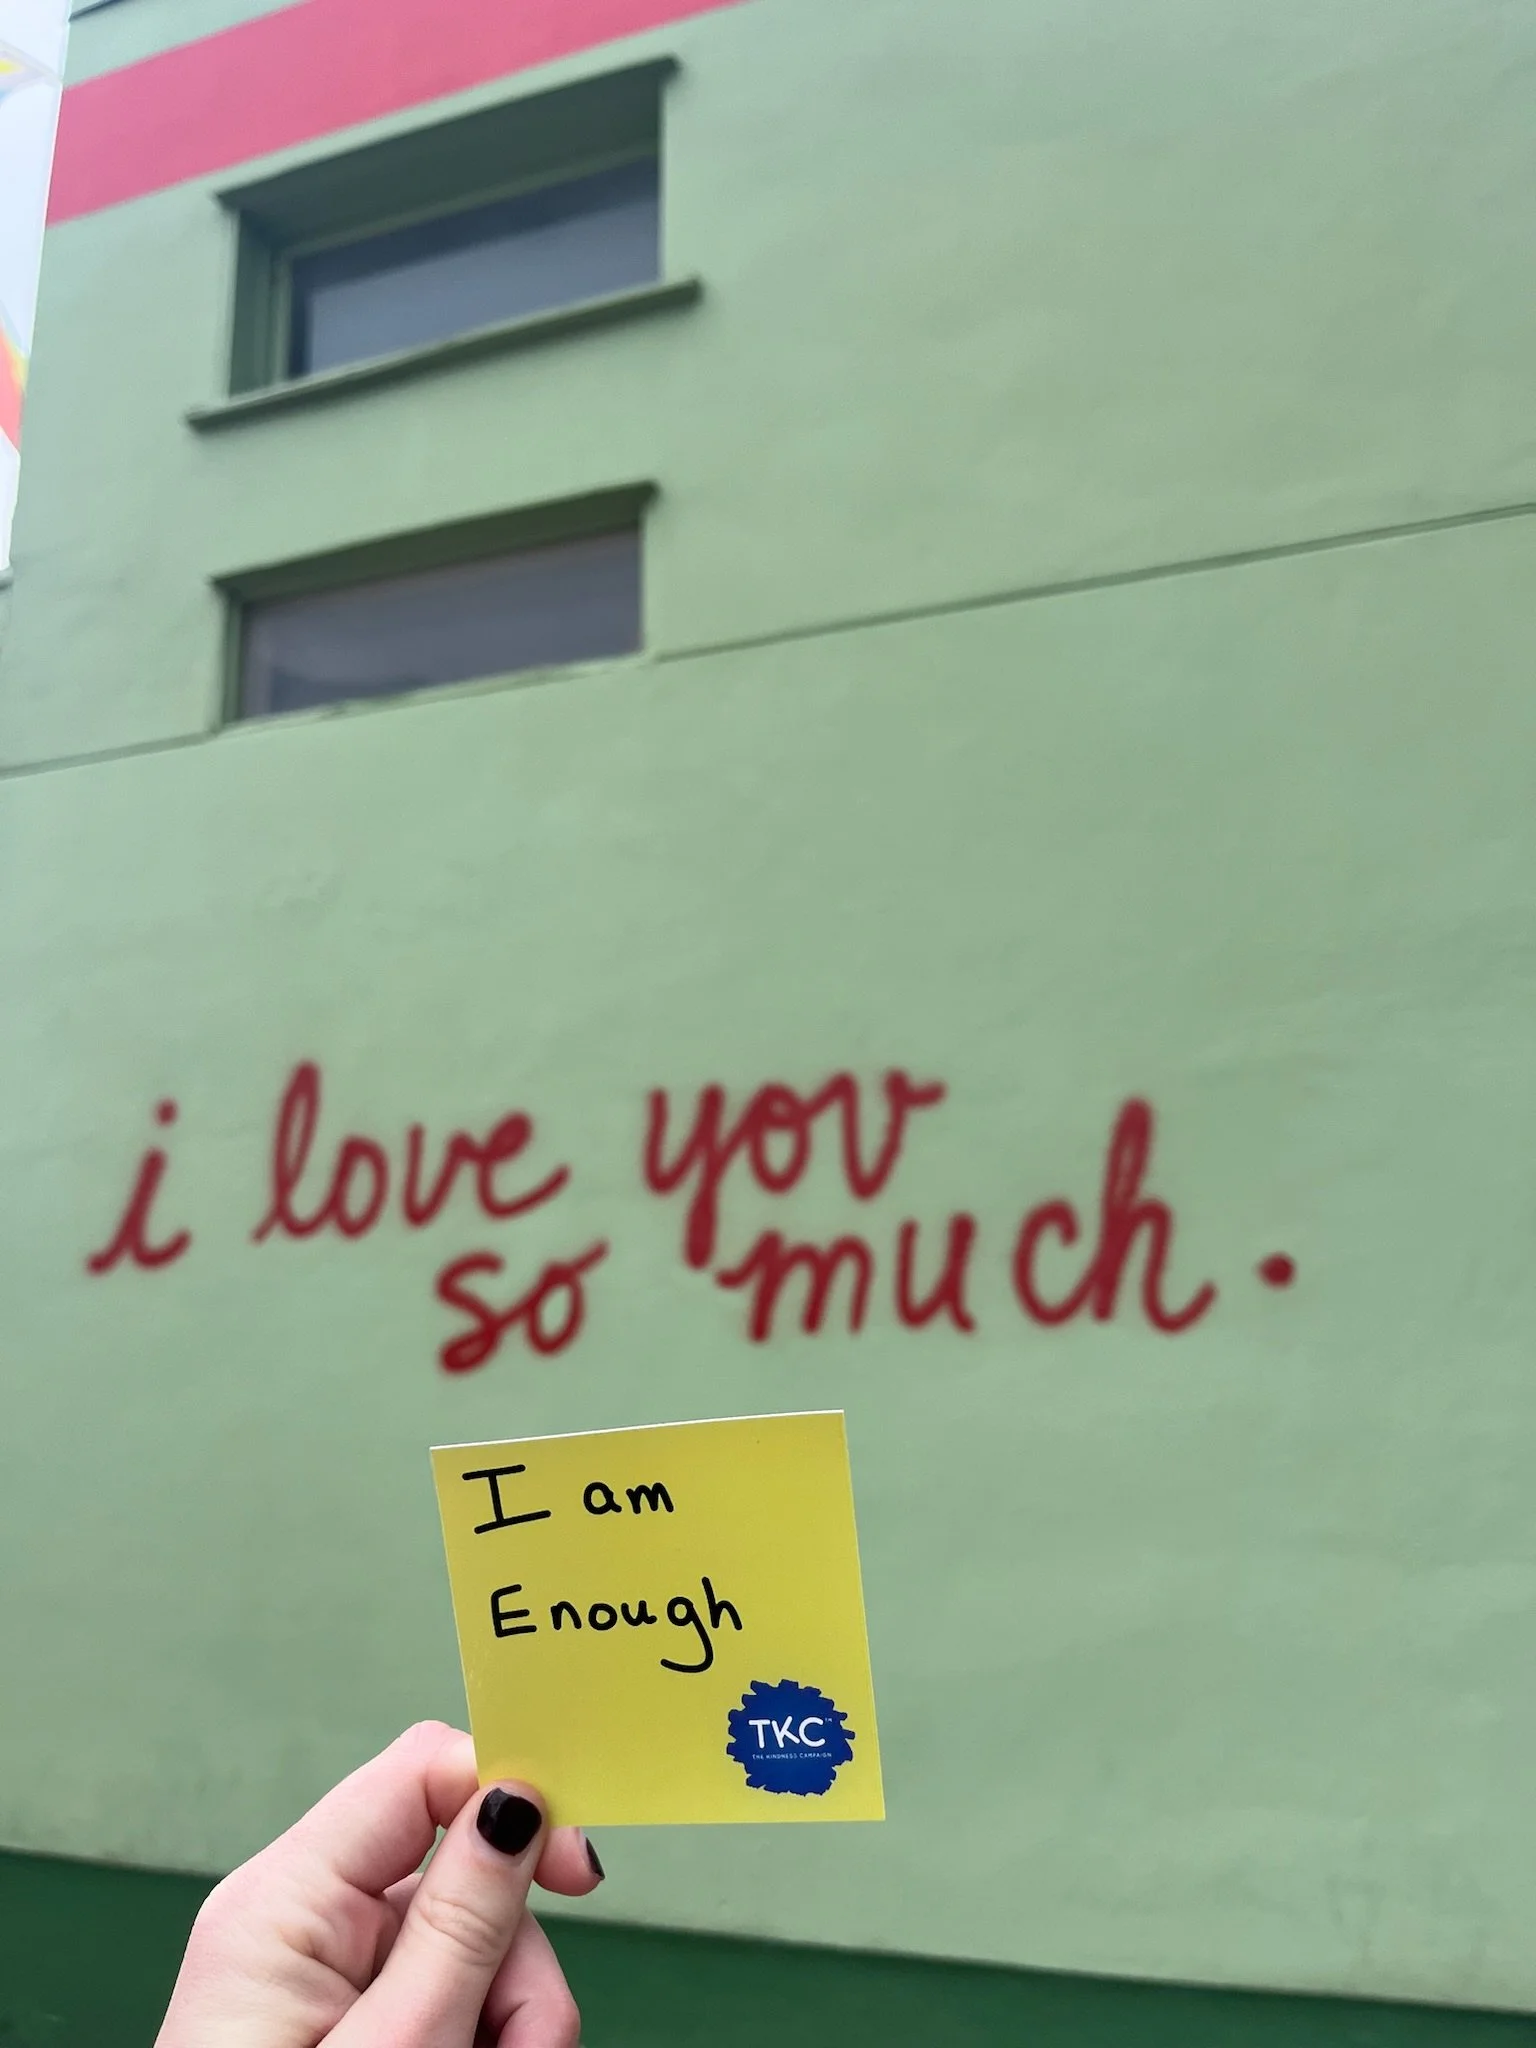 i love you
so much.
I am
Enough
TKC™
THE KINDNESS CAMPAIGN